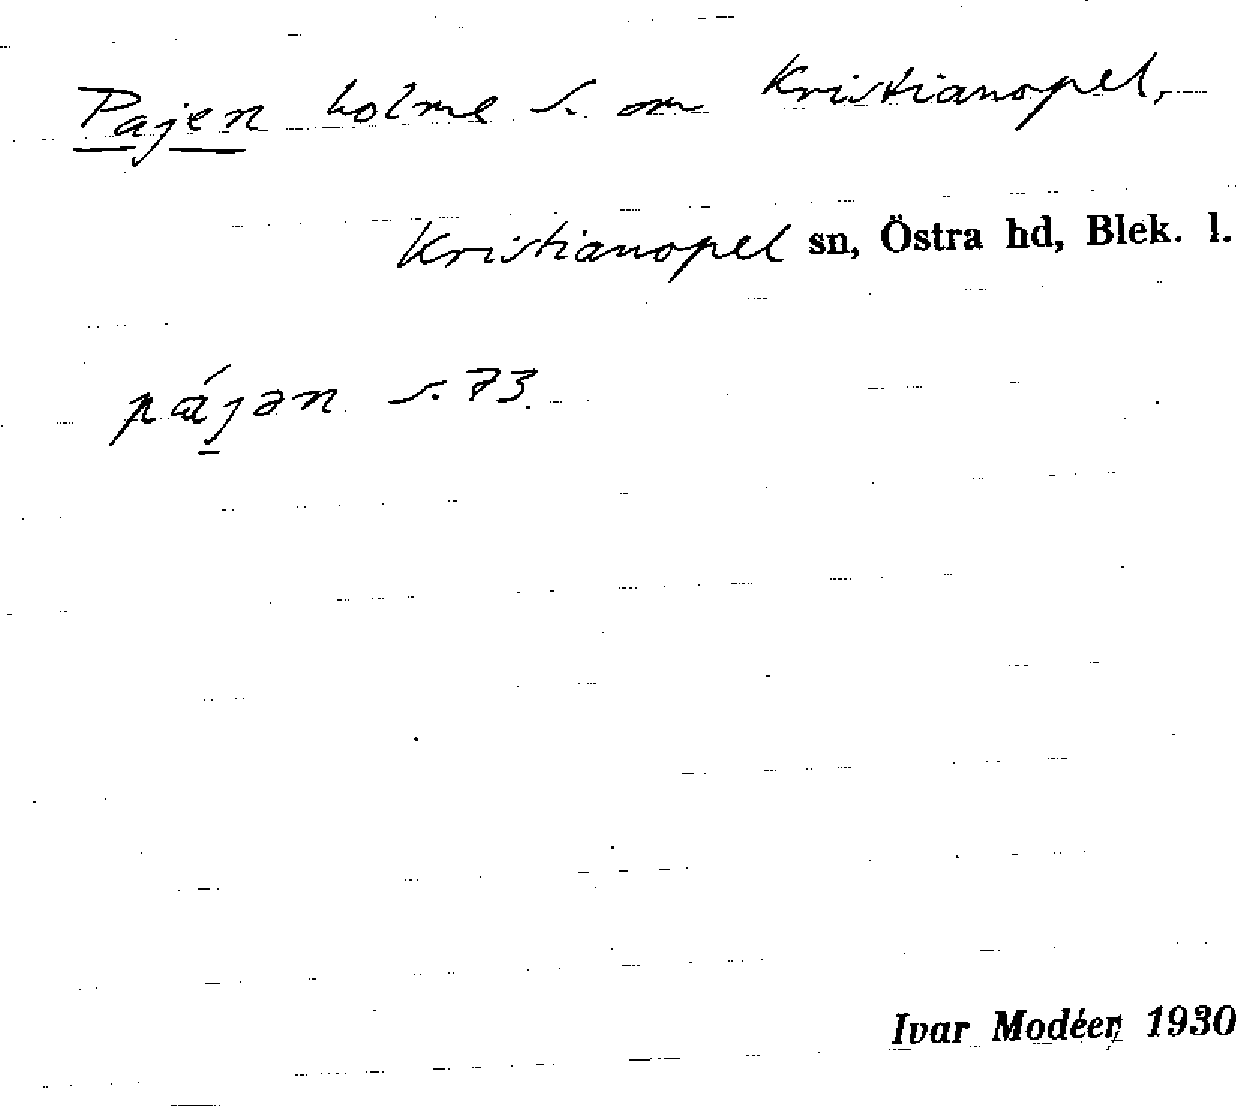 Pajen holme S. om Kristianopel,
Kristianopel sn, Östra hd, Blek. l.
pájən s. 73.
Ivar Modéer 1930